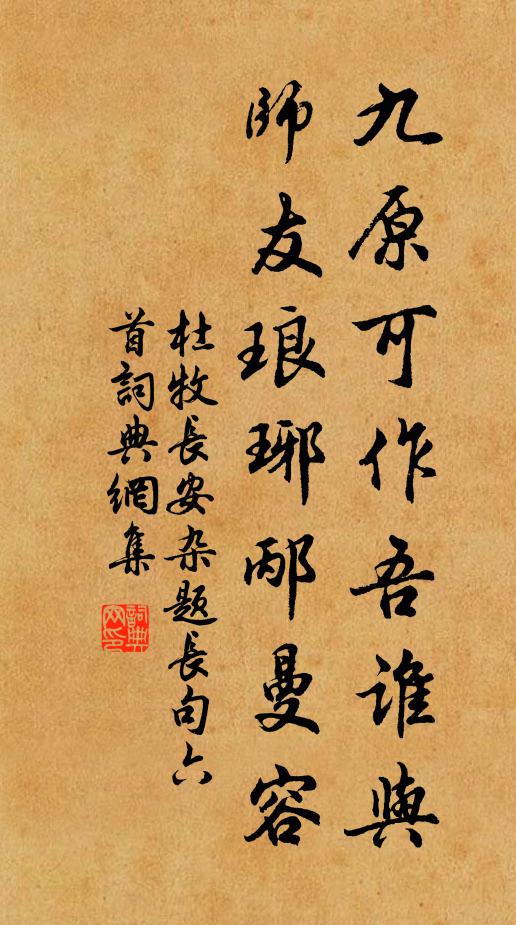 九原可作吾誰與
師友琅琊邴曼容
杜牧長安杂題長句六
首詞典網集
詞典網印